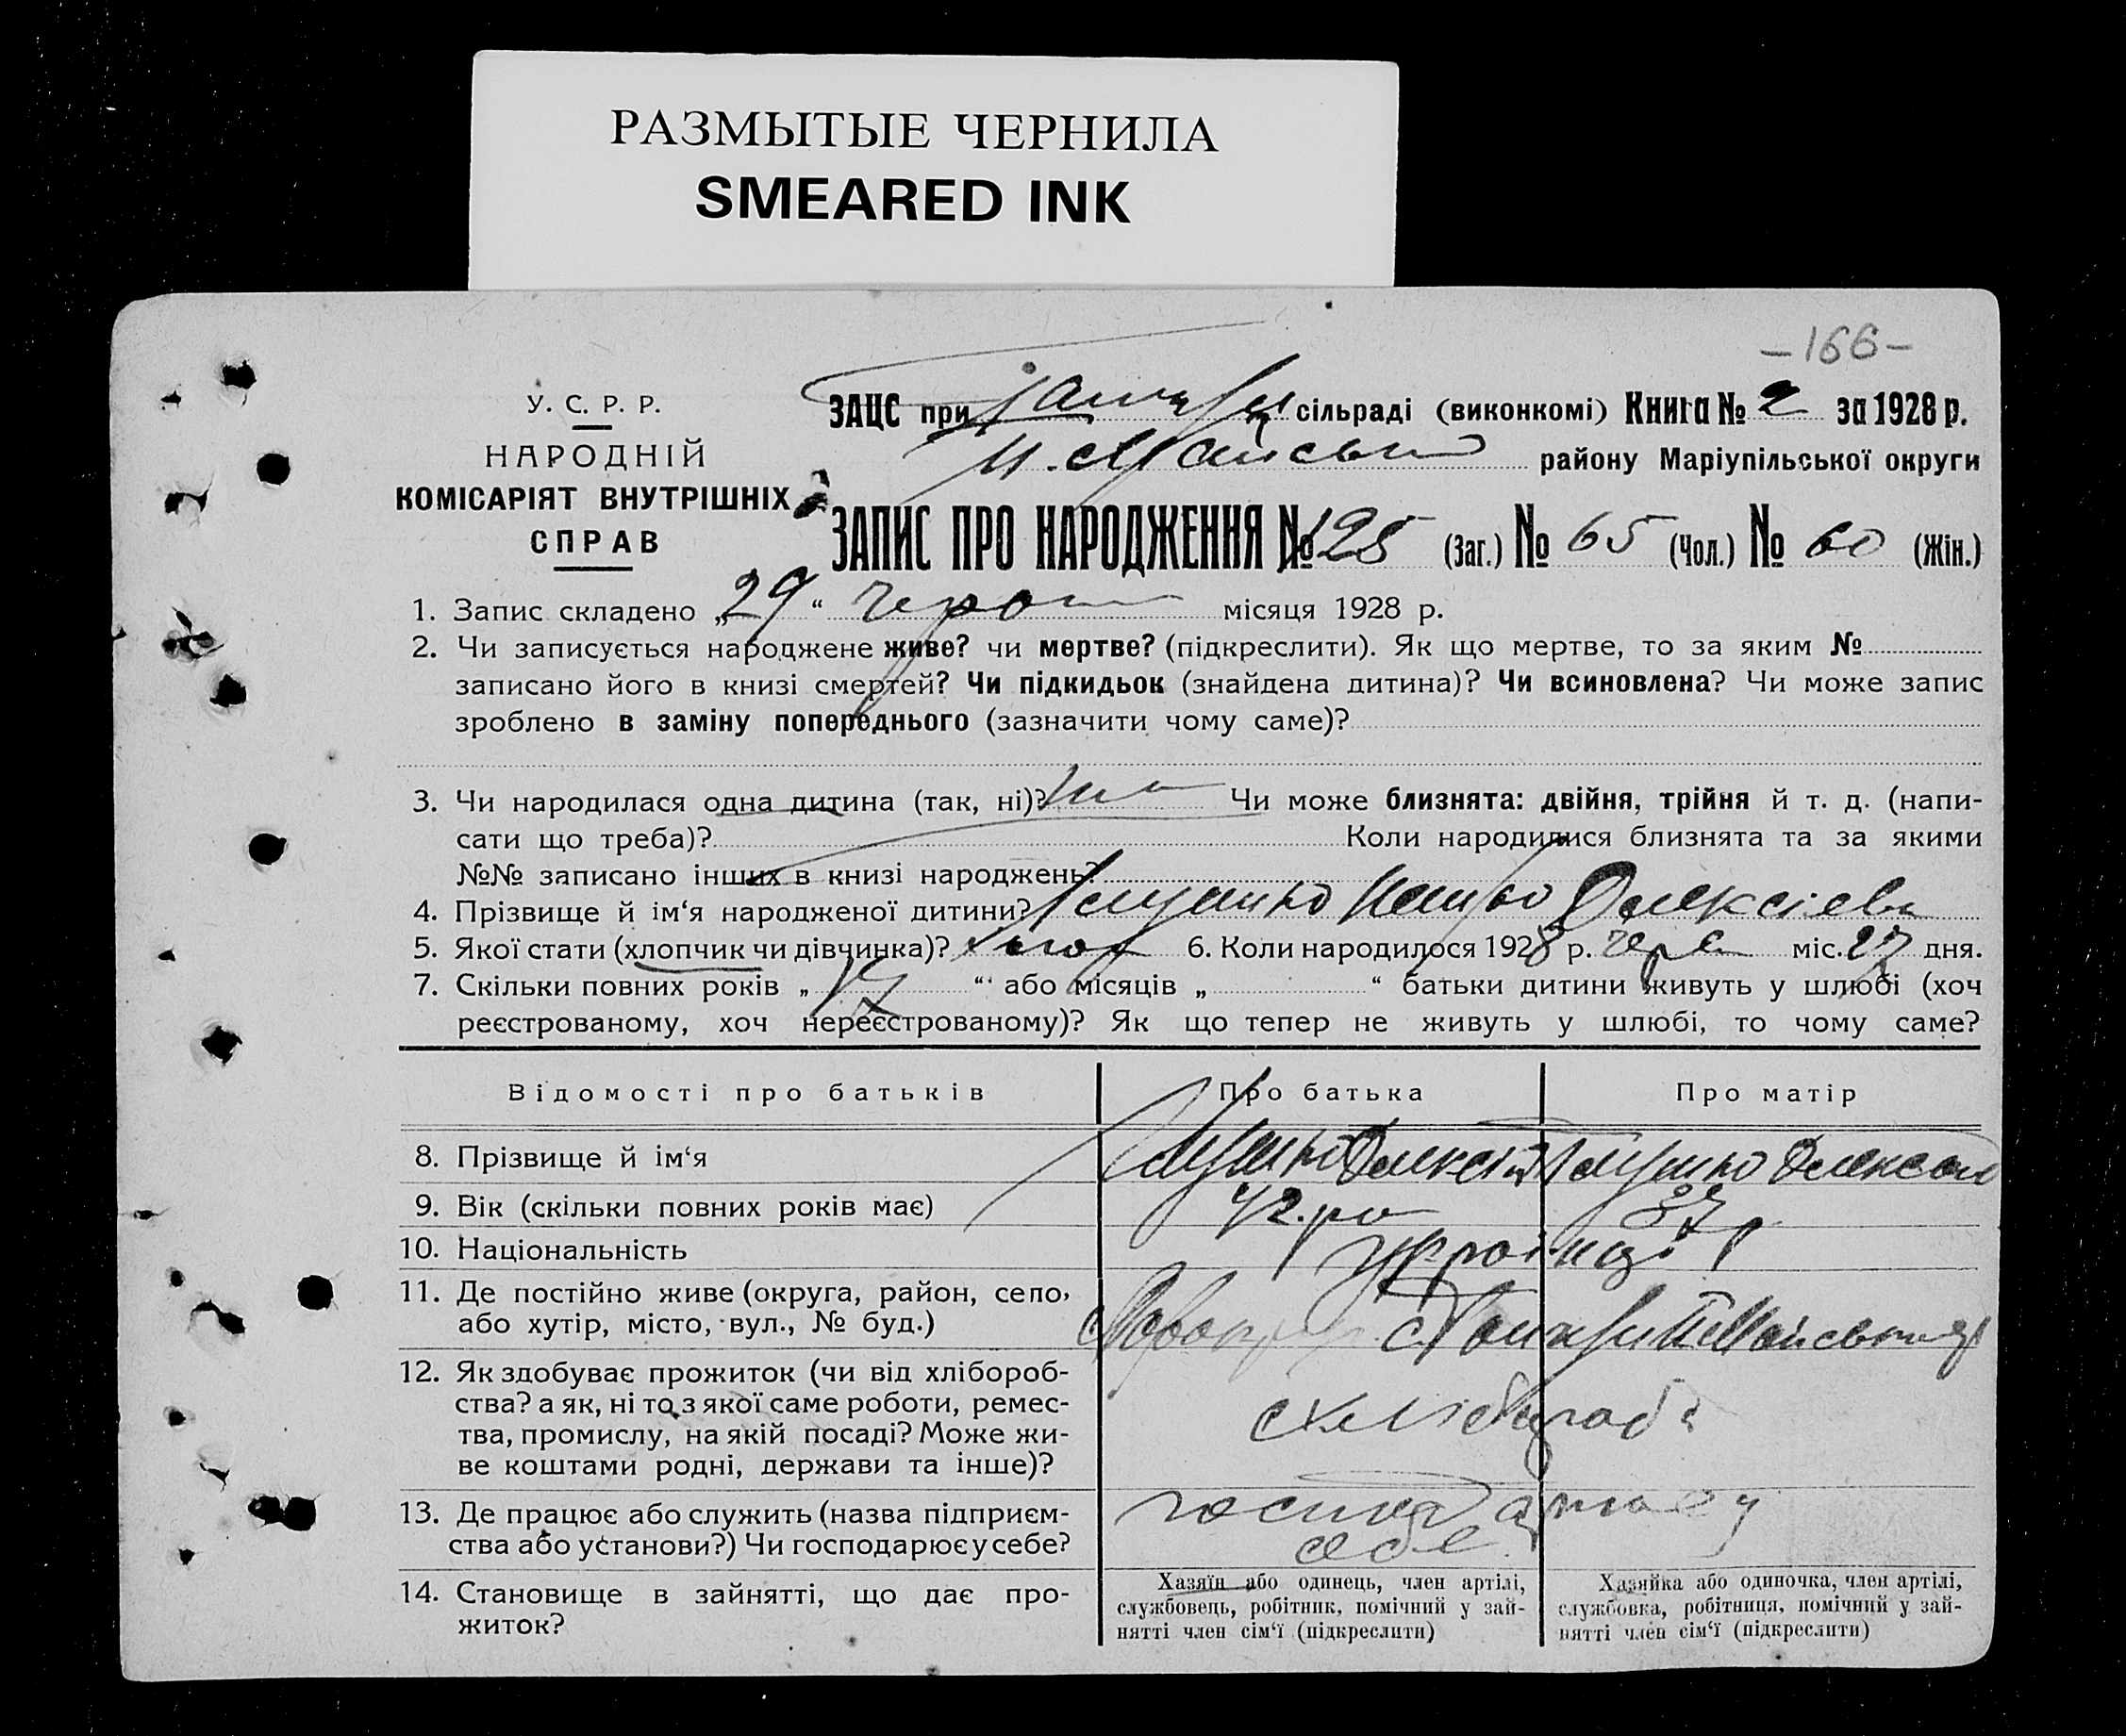 РАЗМЫТЫЕ ЧЕРНИЛА
SMEARED INK
–166–
У. С. Р. Р.
НАРОДНІЙ
КОМІСАРІЯТ ВНУТРІШНІХ
СПРАВ
ЗАЦС при сільраді (виконкомі) Книга № 2 за 1928 р.
району Маріупільської округи
ЗАПИС ПРО НАРОДЖЕННЯ № 125 (Заг.) № 65 (Чол.) № 60 (Жін.)
1. Запис складено „29“ червня місяця 1928 р.
2. Чи записується народжене живе? чи мертве? (підкреслити). Як що мертве, то за яким №
записано його в книзі смертей? Чи підкидьок (знайдена дитина)? Чи всиновлена? Чи може запис
зроблено в заміну попереднього (зазначити чому саме)?
3. Чи народилася одна дитина (так, ні)? Чи може близнята: двійня, трійня й т. д. (напи-
сати що треба)? Коли народилися близнята та за якими
№№ записано інших в книзі народжень?
4. Прізвище й ім‘я народженої дитини? Олексієв
5. Якої стати (хлопчик чи дівчинка)? 6. Коли народилося 1928 р. черв міс. 27 дня.
7. Скільки повних років „ 17 “ або місяців „ “ батьки дитини живуть у шлюбі (хоч
реєстрованому, хоч нереєстрованому)? Як що тепер не живуть у шлюбі, то чому саме?
Відомості про батьків Про батька Про матір
8. Прізвище й ім‘я Олексій
9. Вік (скільки повних років має) 42. ро 37 р
10. Національність українці
11. Де постійно живе (округа, район, село,
або хутір, місто, вул., № буд.)
12. Як здобуває прожиток (чи від хлібороб-
ства? а як, ні то з якої саме роботи, ремес-
тва, промислу, на якій посаді? Може жи-
ве коштами родні, держави та інше)?
13. Де працює або служить (назва підприєм-
ства або установи?) Чи господарює у себе? у
себе
14. Становище в зайнятті, що дає про-
житок?
Хазяїн або одинець, член артілі,
службовець, робітник, помічний у зай-
нятті член сім‘ї (підкреслити)
Хазяйка або одиночка, член артілі,
службовка, робітниця, помічний у зай-
нятті член сім‘ї (підкреслити)